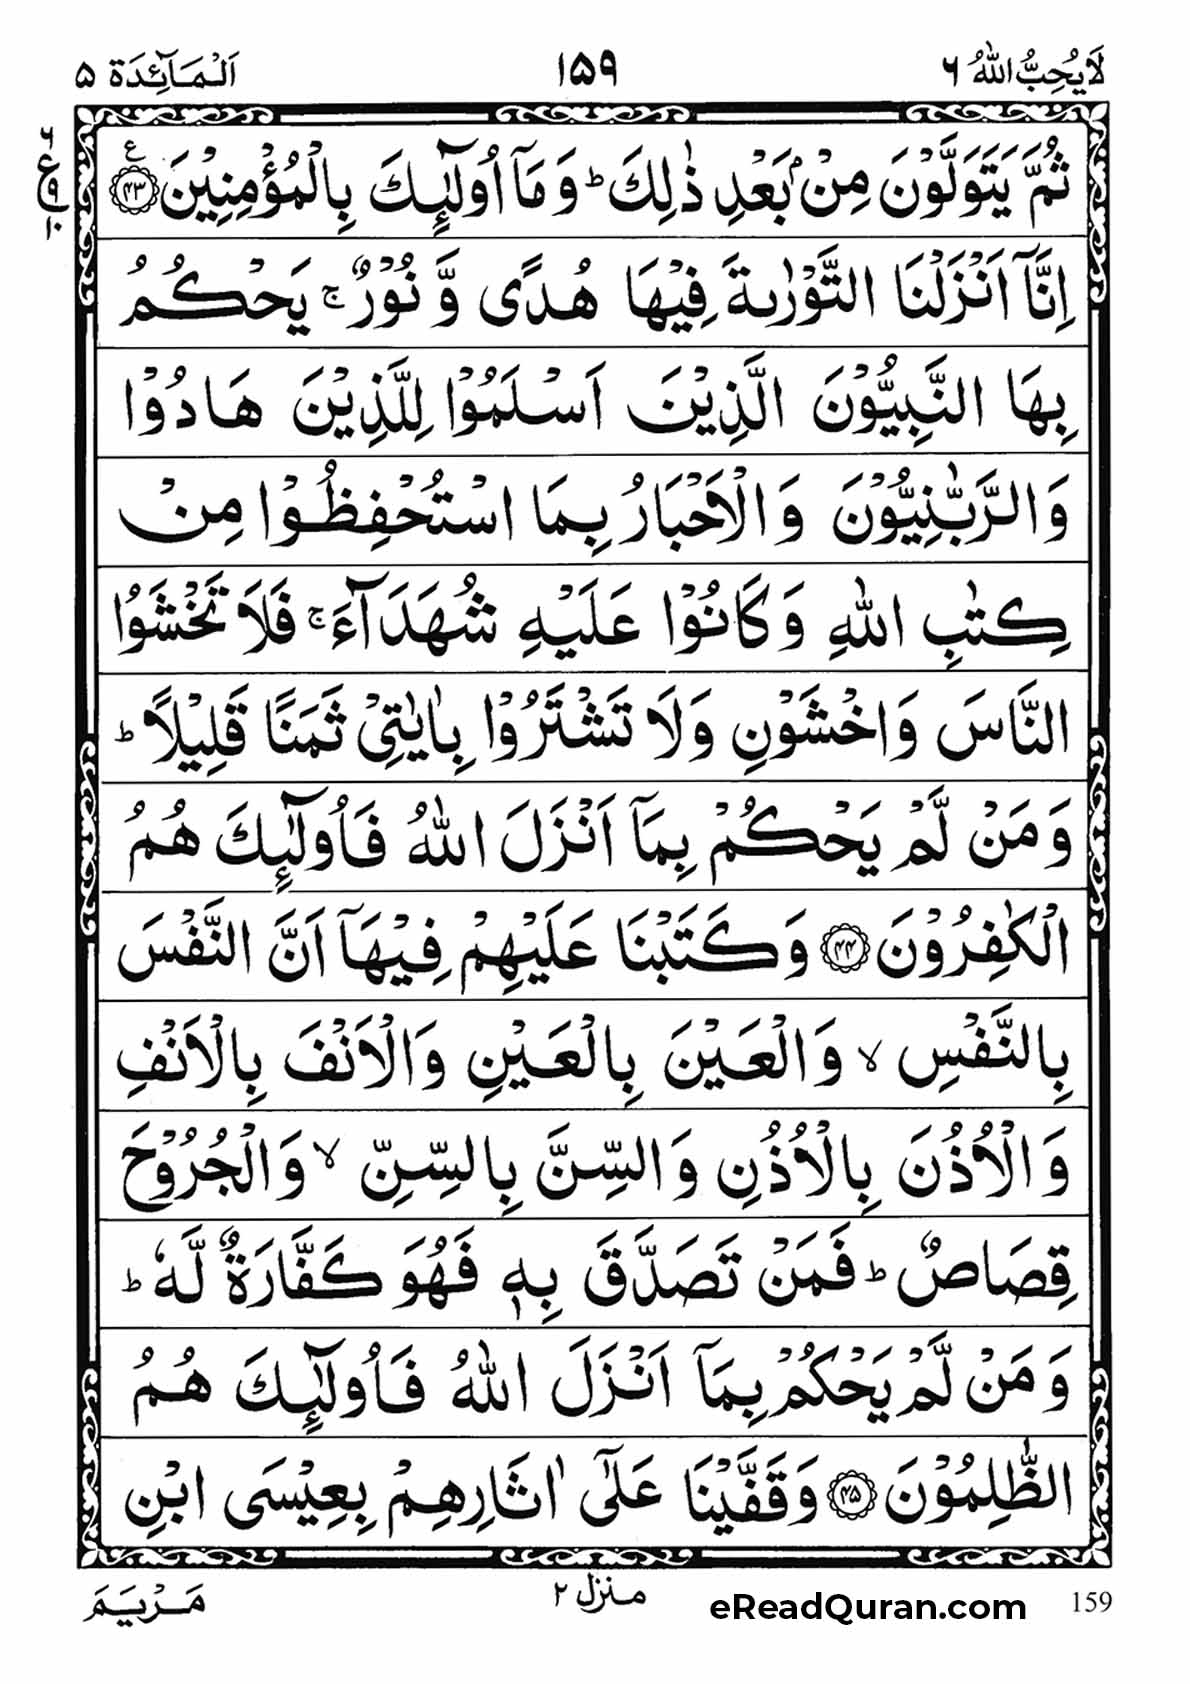 لَا يُحِبُّ اللّٰهُ ٦
١٥٩
اَلْمَآئِدَة ٥
ثُمَّ يَتَوَلَّوْنَ مِنْۢ بَعْدِ ذٰلِكَ ؕ وَ مَاۤ اُولٰٓئِكَ بِالْمُؤْمِنِيْنَ ﴿۴۳﴾ ع
٦
ع
٩
١٠
اِنَّاۤ اَنْزَلْنَا التَّوْرٰىةَ فِيْهَا هُدًى وَّ نُوْرٌ ۚ يَحْكُمُ
بِهَا النَّبِيُّوْنَ الَّذِيْنَ اَسْلَمُوْا لِلَّذِيْنَ هَادُوْا
وَالرَّبّٰنِيُّوْنَ وَ الْاَحْبَارُ بِمَا اسْتُحْفِظُوْا مِنْ
كِتٰبِ اللّٰهِ وَ كَانُوْا عَلَيْهِ شُهَدَآءَ ۚ فَلَا تَخْشَوُا
النَّاسَ وَ اخْشَوْنِ وَلَا تَشْتَرُوْا بِاٰيٰتِيْ ثَمَنًا قَلِيْلًا ؕ
وَ مَنْ لَّمْ يَحْكُمْ بِمَاۤ اَنْزَلَ اللّٰهُ فَاُولٰٓئِكَ هُمُ
الْكٰفِرُوْنَ ﴿۴۴﴾ وَ كَتَبْنَا عَلَيْهِمْ فِيْهَاۤ اَنَّ النَّفْسَ
بِالنَّفْسِ ۙ وَ الْعَيْنَ بِالْعَيْنِ وَالْاَنْفَ بِالْاَنْفِ
وَ الْاُذُنَ بِالْاُذُنِ وَ السِّنَّ بِالسِّنِّ ۙ وَ الْجُرُوْحَ
قِصَاصٌ ؕ فَمَنْ تَصَدَّقَ بِهٖ فَهُوَ كَفَّارَةٌ لَّهٗ ؕ
وَ مَنْ لَّمْ يَحْكُمْ بِمَاۤ اَنْزَلَ اللّٰهُ فَاُولٰٓئِكَ هُمُ
الظّٰلِمُوْنَ ﴿۴۵﴾ وَ قَفَّيْنَا عَلٰۤى اٰثَارِهِمْ بِعِيْسَى ابْنِ
مَرْيَمَ
منزل ٢
eReadQuran.com
159